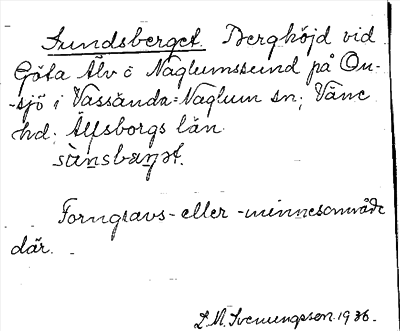 Sundsberget. Berghöjd vid
Göta Älv o Naglumssund på On-
-sjö i Vassända-Naglum sn; Väne
hd; Älfsborgs län
Forngravs- eller -minnesområde
där.
L. M. Svenungsson. 1936.